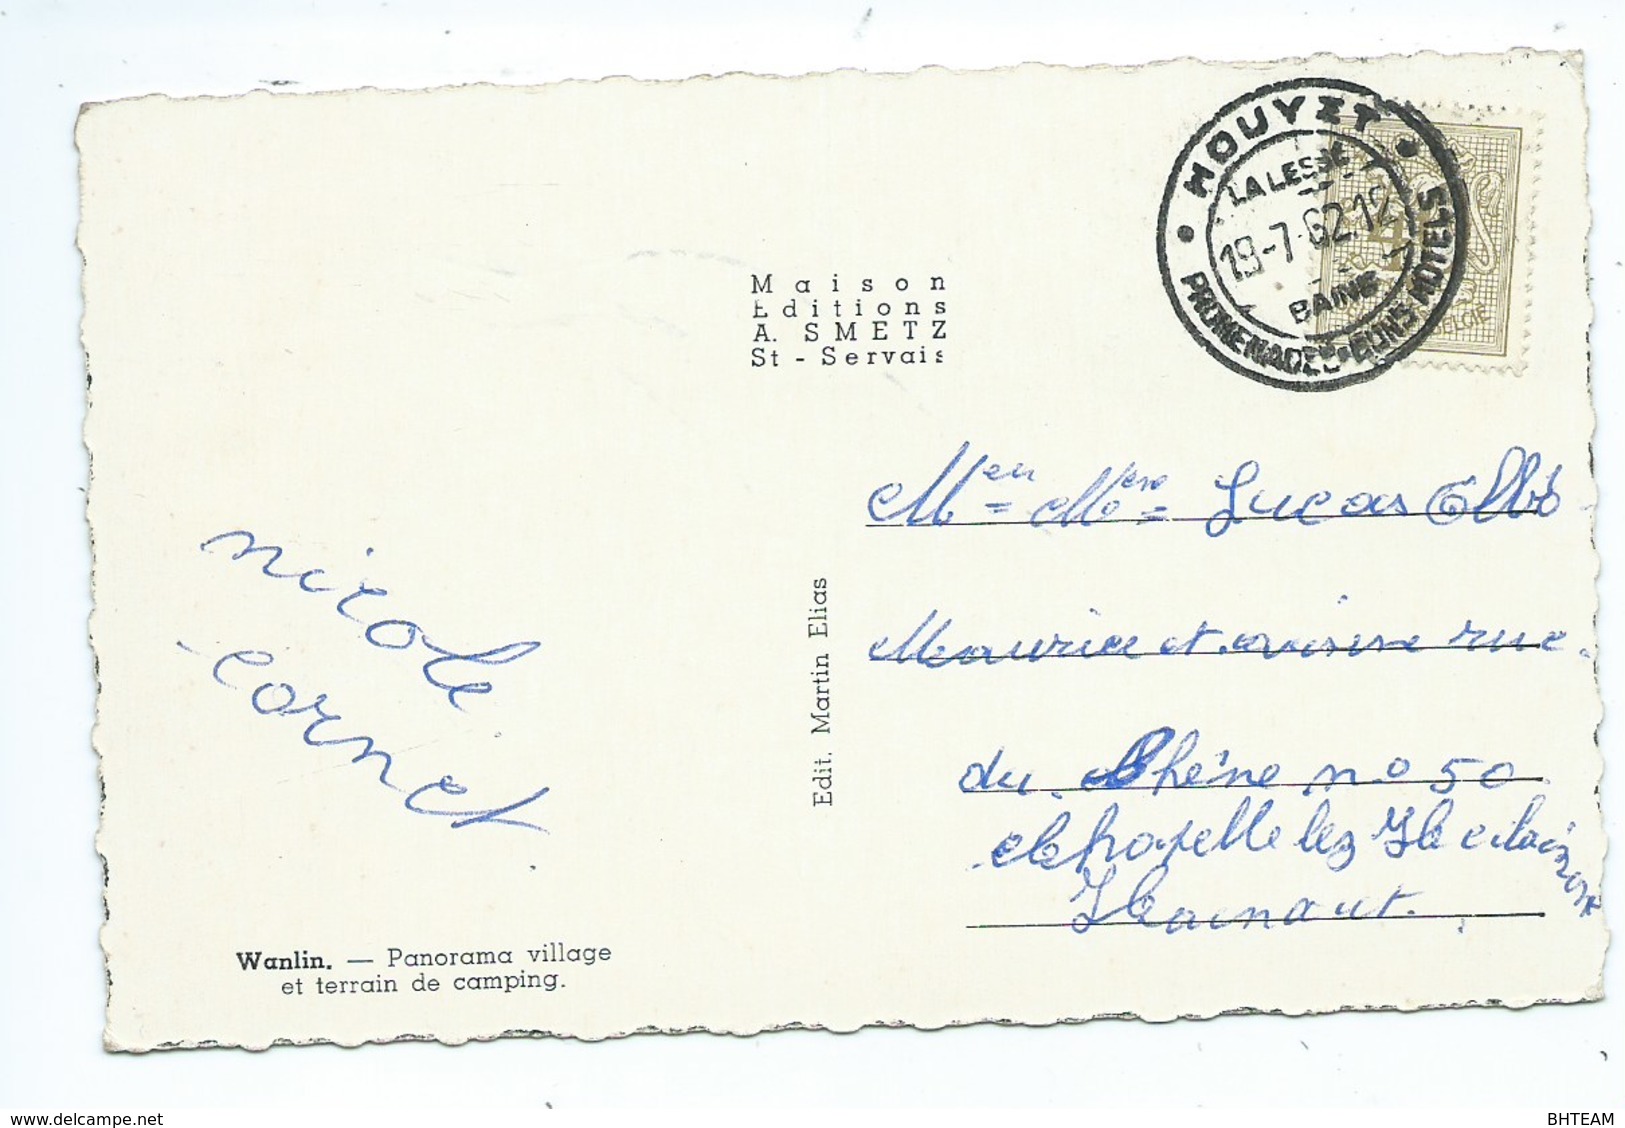 HOUYET
LA LESSE
19-7-62 12
BAINS
PROMENADES • BONS HOTELS
BELGIE
Maison
Editions
A. SMETZ
St - Servais
Edit. Martin Elias
nicole
cornet
Lucas
Maurice et rue
du Chêne no 50
chapelle lez
Hainaut.
Wanlin. — Panorama village
et terrain de camping.
www.delcampe.net
BHTEAM